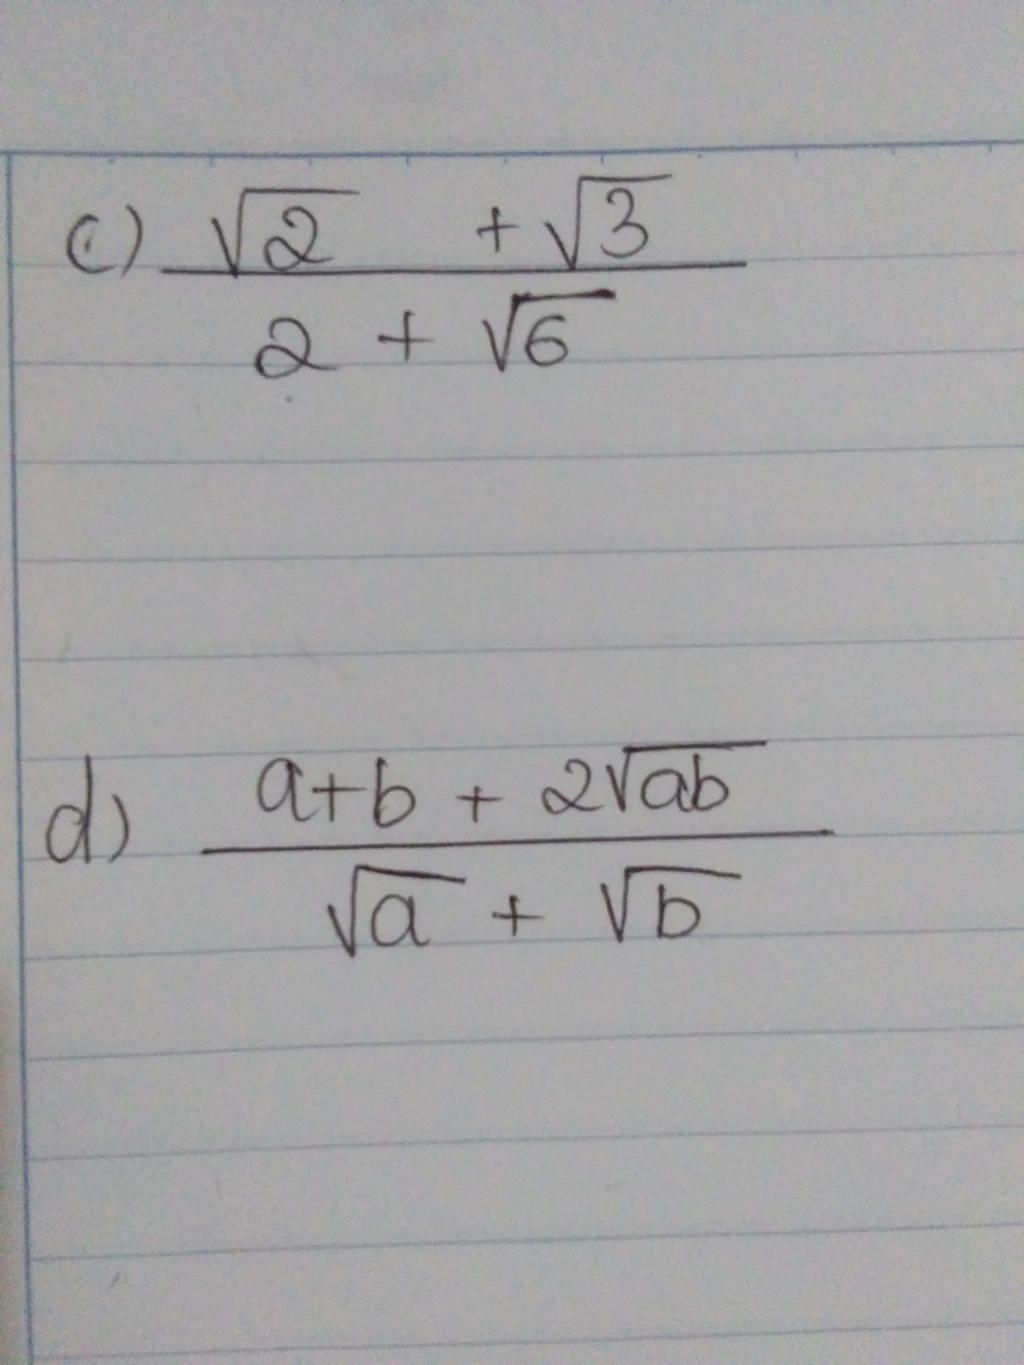 c) √2 + √3
2 + √6
d) a+b + 2√ab
√a + √b